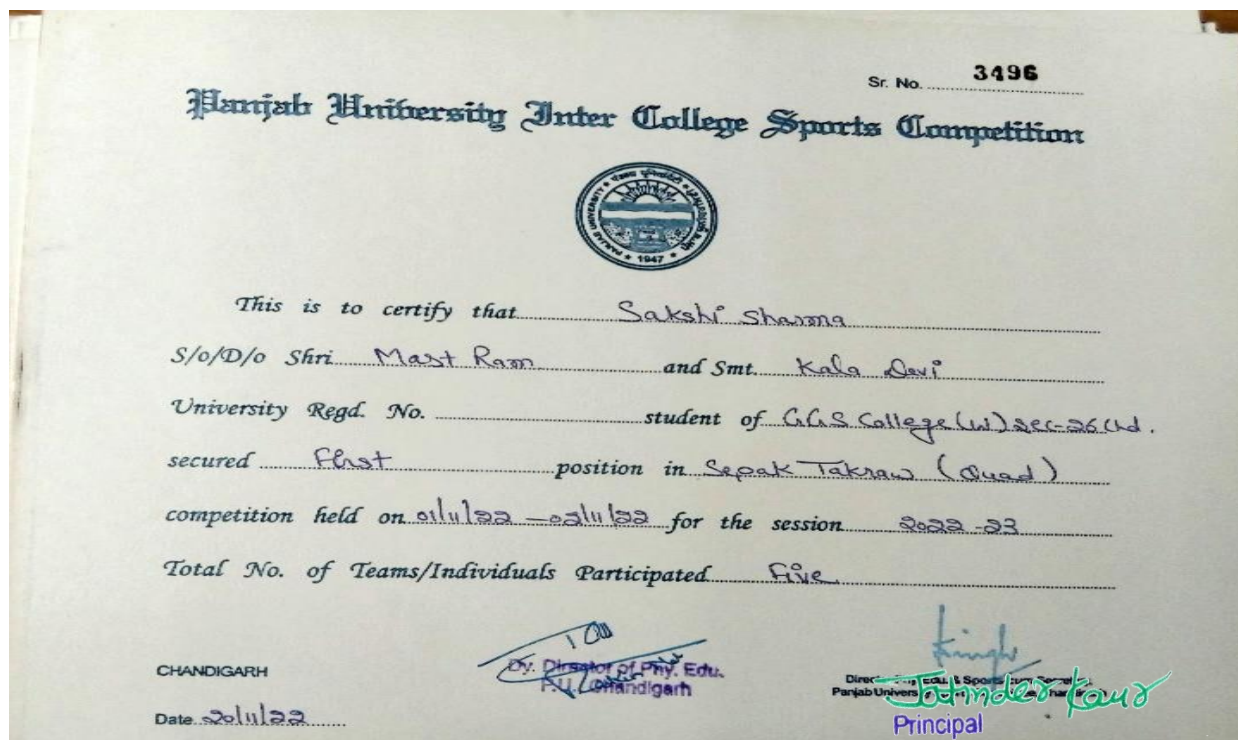 Sr. No. 3496
Panjab University Inter College Sports Competition
PANJAB UNIVERSITY
1947
This is to certify that Sakshi Sharma
S/o/D/o Shri Mast Ram and Smt. Kala Devi
University Regd. No. student of GGS College (W) Sec-26 Chd.
secured First position in Sepak Takraw (Quad)
competition held on 01/11/22 - 02/11/22 for the session 2022-23
Total No. of Teams/Individuals Participated Five
CHANDIGARH
Dy. Director of Phy. Edu.
P.U. Chandigarh
Panjab University
Jatinder Kaur
Date 20/11/22
Principal